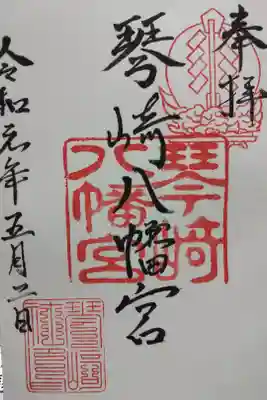 奉拝
琴崎八幡宮
琴崎八幡宮
令和元年五月二日